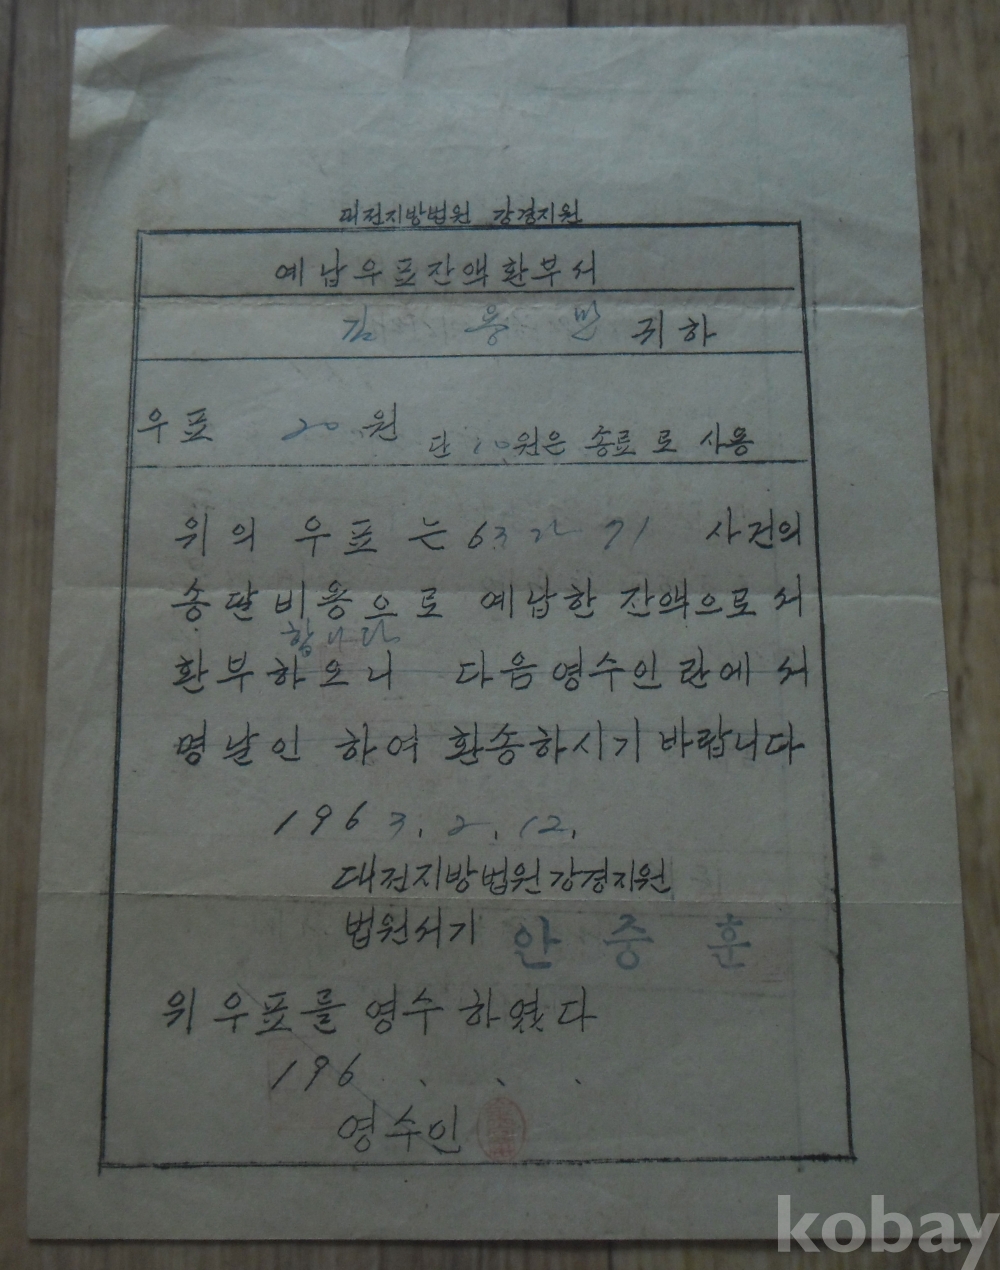 대전지방법원 강경지원
예납우표잔액환부서
김 용 만 귀하
우표 20원 단 10원은 송료로 사용
위의 우표는 63 가 71 사건의
송달비용으로 예납한 잔액으로서
합니다
환부하오니 다음영수인란에서
명날인 하여 환송하시기바랍니다
1963. 2. 12.
대전지방법원강경지원
법원서기 안 중 훈
위우표를 영수하였다
196 . . .
영수인
kobay